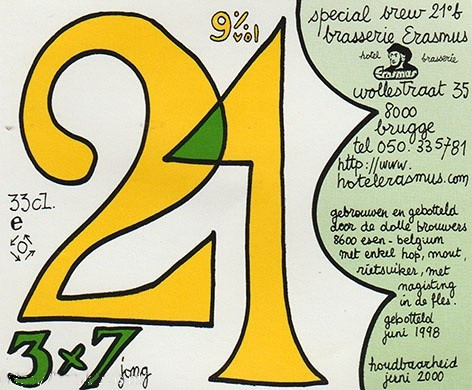 special brew 21°b
brasserie Erasmus
hotel brasserie
Erasmus
wollestraat 35
8000
brugge
tel 050.335781
http://www.
hotelerasmus.com
gebrouwen en gebotteld
door de dolle brouwers
8600 esen - belgium
met enkel hop, mout,
rietsuiker, met
nagisting
in de fles.
gebotteld
juni 1998
houdbaarheid
juni 2000
9% vol
21
33cl.
e
3x7 jong